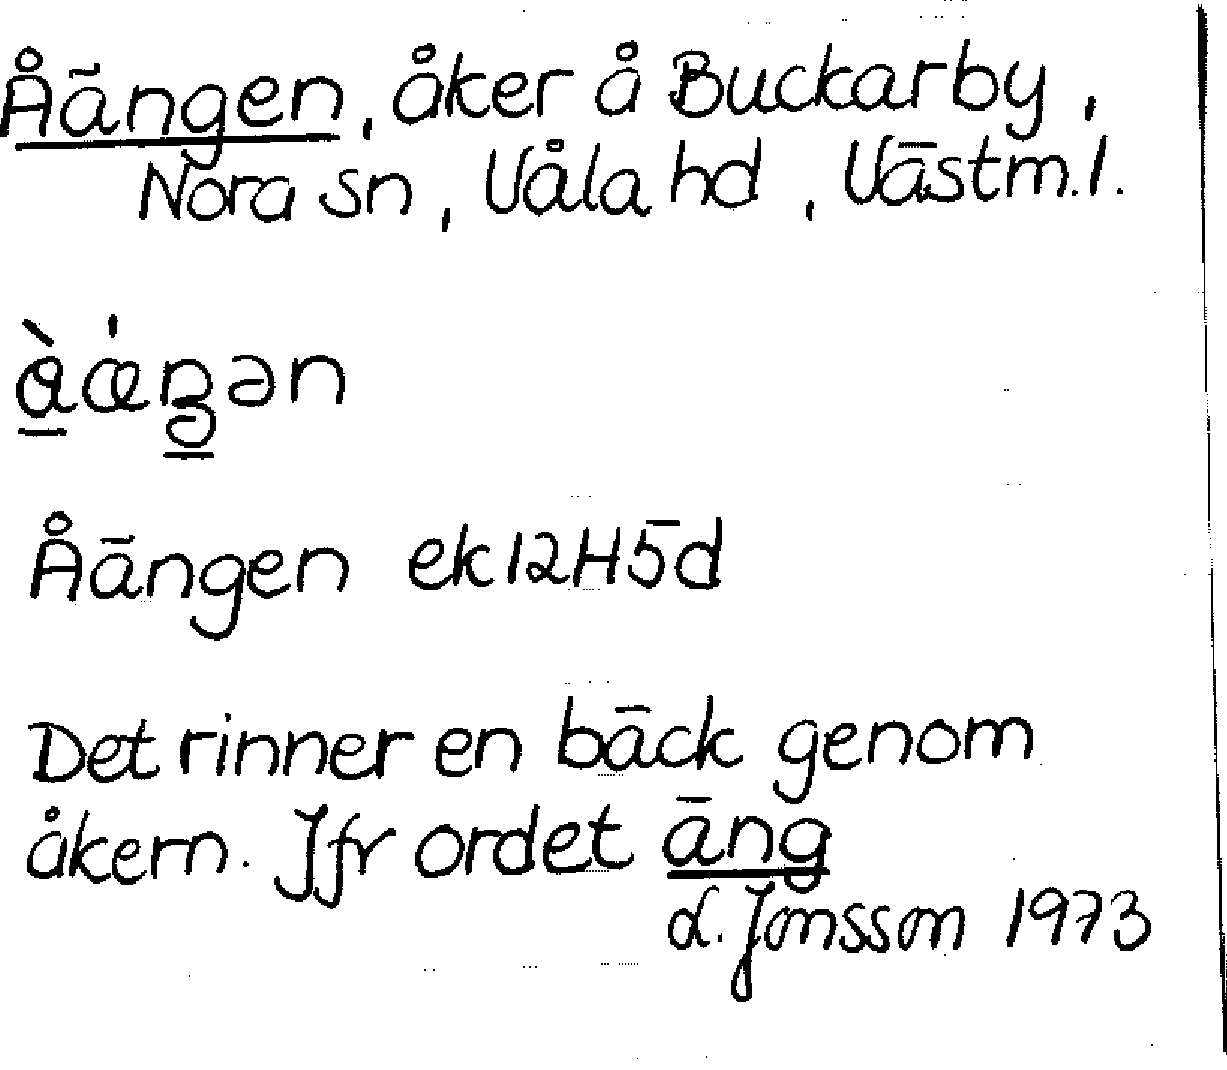 Åängen, åker å Buckarby,
Nora sn, Våla hd, Västm.l.
Åängen ek 12H5d
Det rinner en bäck genom
åkern. Jfr ordet äng
L. Jonsson 1973